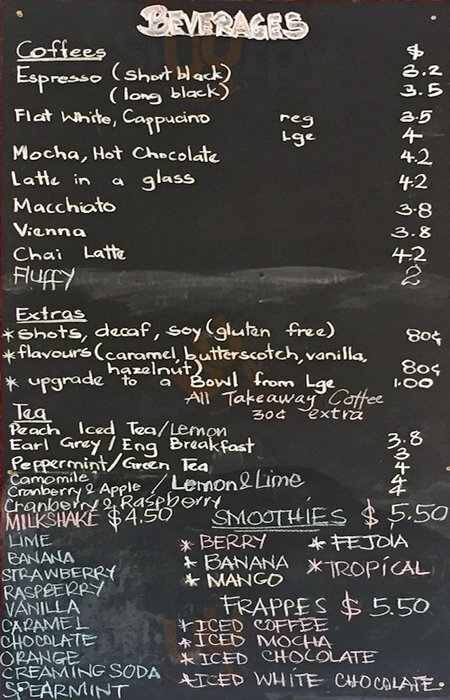 BEVERAGES
Coffees $
Espresso (short black) 3.2
(long black) 3.5
Flat White, Cappucino reg 3.5
Lge 4
Mocha, Hot Chocolate 4.2
Latte in a glass 4.2
Macchiato 3.8
Vienna 3.8
Chai Latte 4.2
Fluffy 2
Extras
* shots, decaf, soy (gluten free) 80¢
* flavours (caramel, butterscotch, vanilla,
hazelnut) 80¢
* upgrade to a Bowl from Lge 1.00
All Takeaway Coffee
30¢ extra
Tea
Peach Iced Tea/Lemon 3.8
Earl Grey / Eng Breakfast 3
Peppermint/Green Tea 4
Camomile 4
Cranberry & Apple / Lemon & Lime 4
Cranberry & Raspberry
MILKSHAKE $4.50
LIME
BANANA
STRAWBERRY
RASPBERRY
VANILLA
CARAMEL
CHOCOLATE
ORANGE
CREAMING SODA
SPEARMINT
SMOOTHIES $5.50
* BERRY * FEJOIA
* BANANA * TROPICAL
* MANGO
FRAPPES $5.50
* ICED COFFEE
* ICED MOCHA
* ICED CHOCOLATE
* ICED WHITE CHOCOLATE